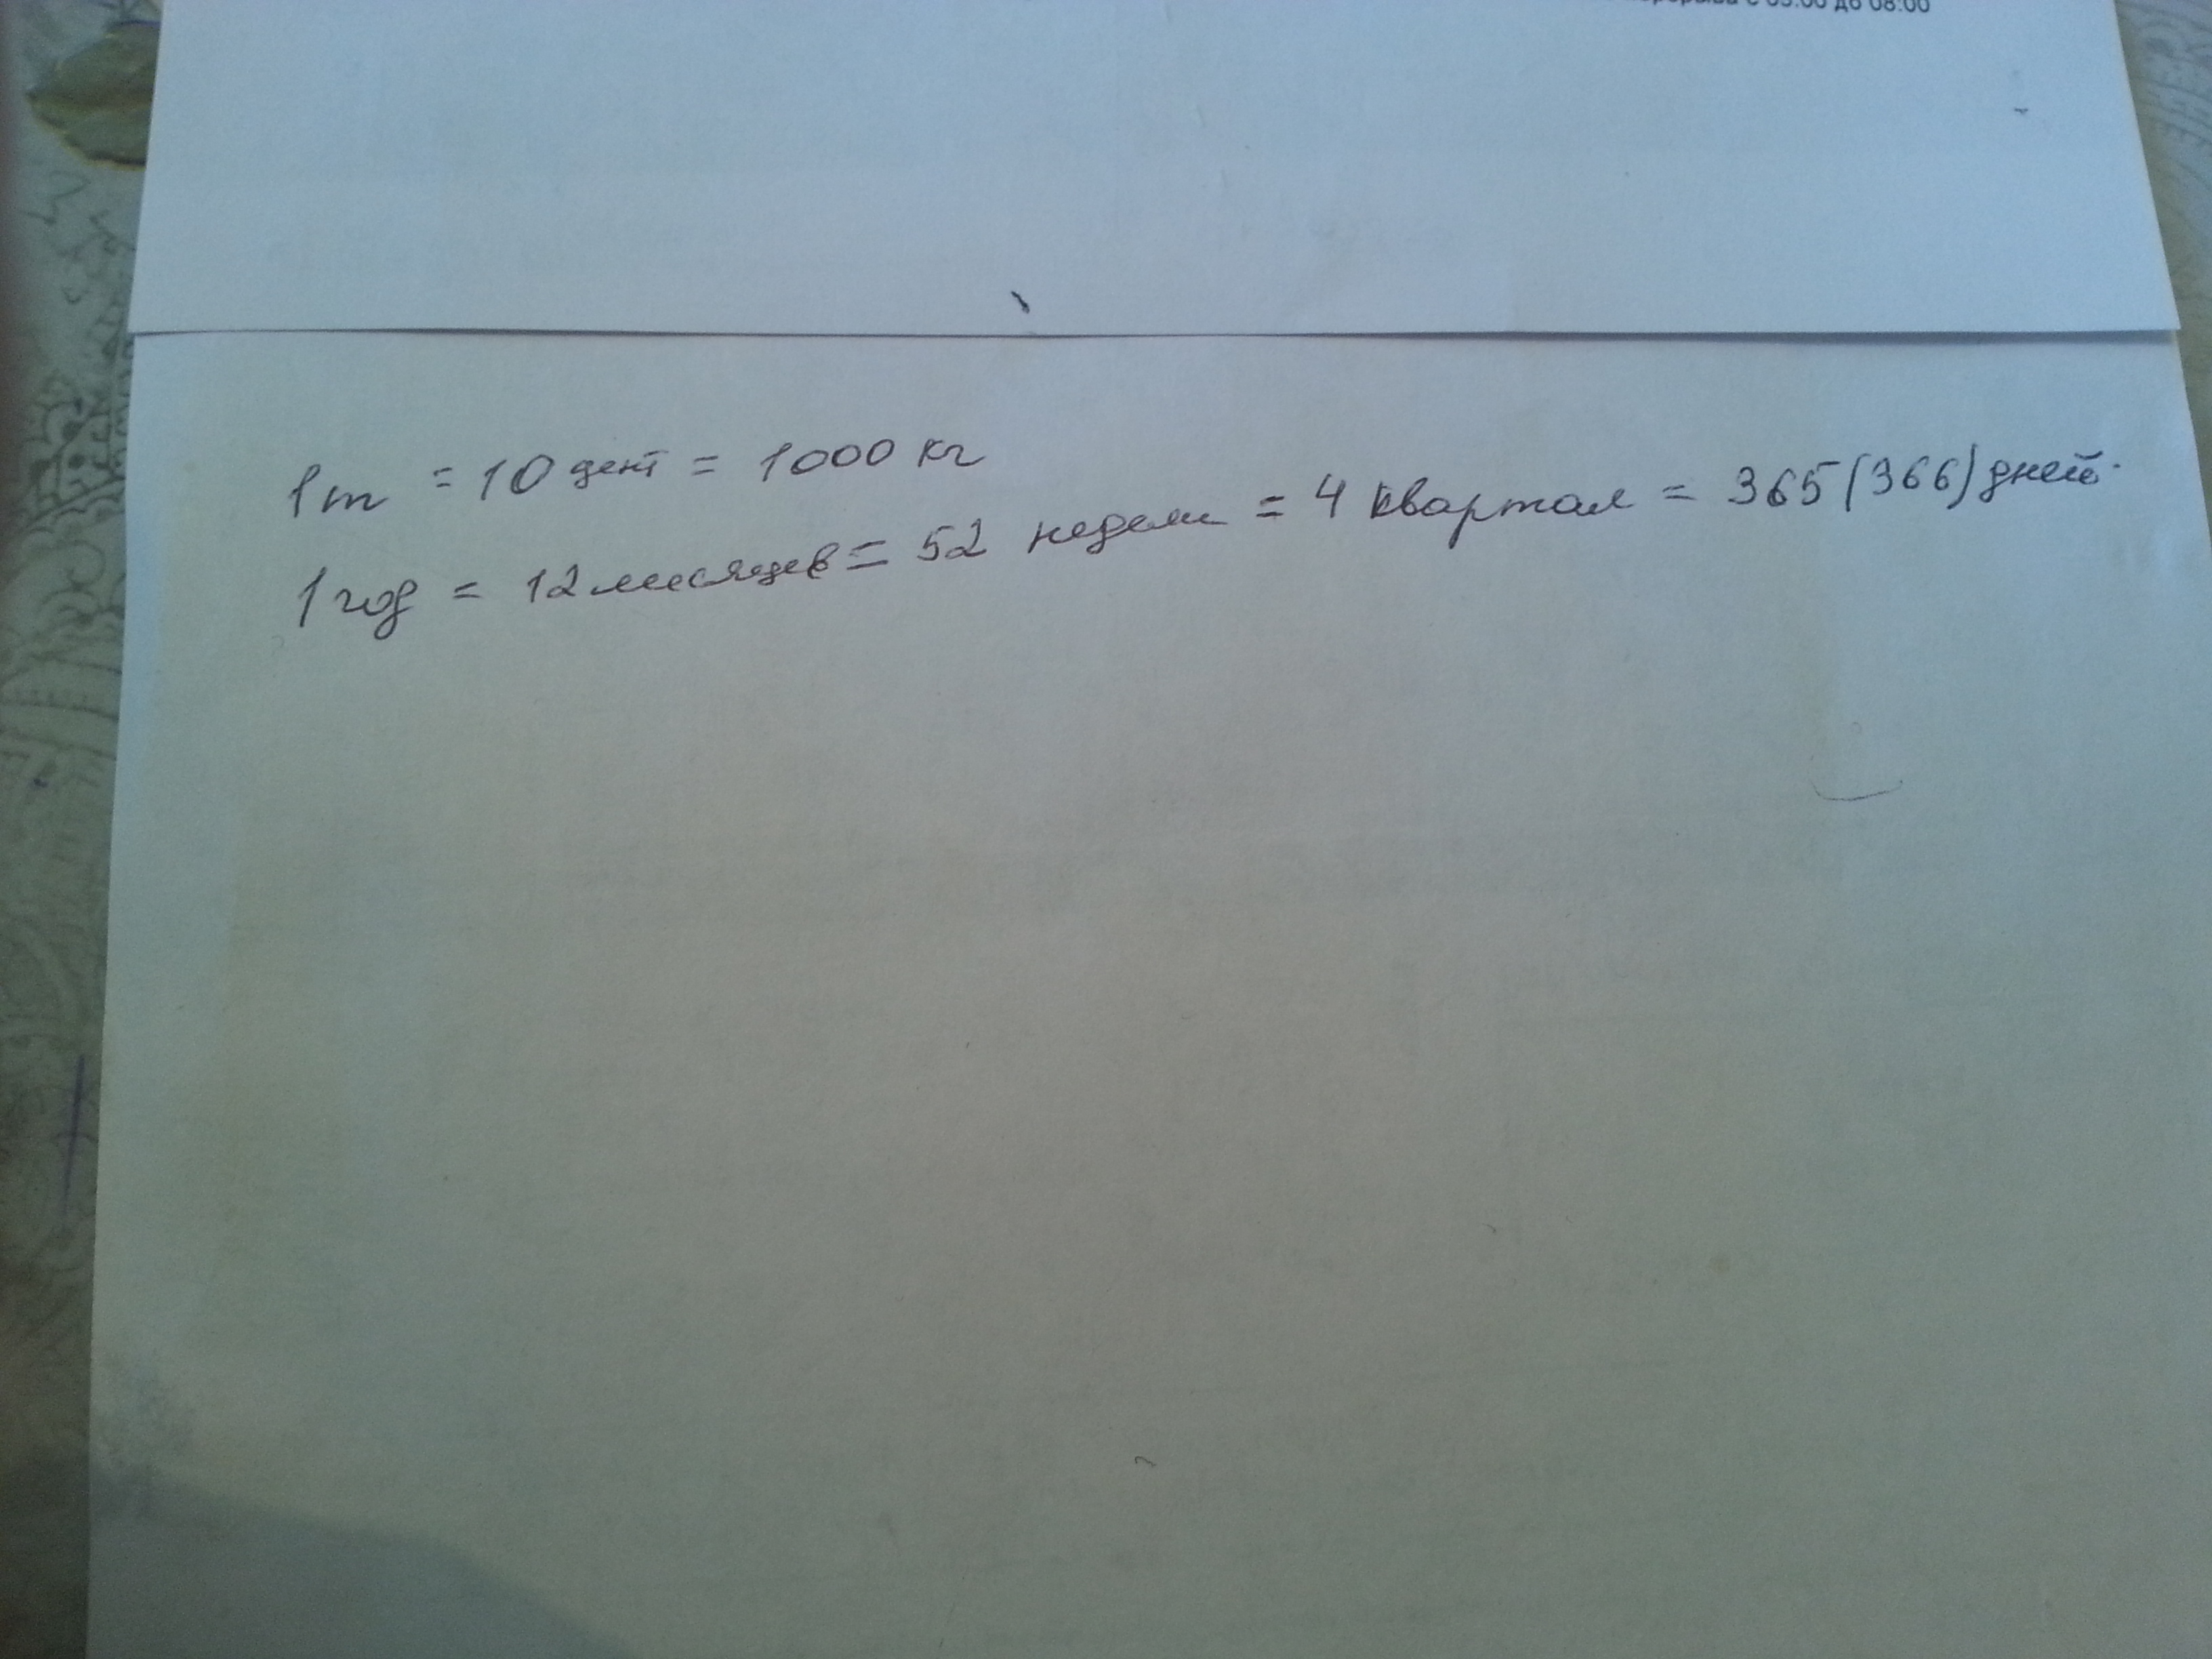 с 05:00 до 08:00
1 т = 10 цент = 1000 кг
1 год = 12 месяцев = 52 недели = 4 квартал = 365 (366) дней.